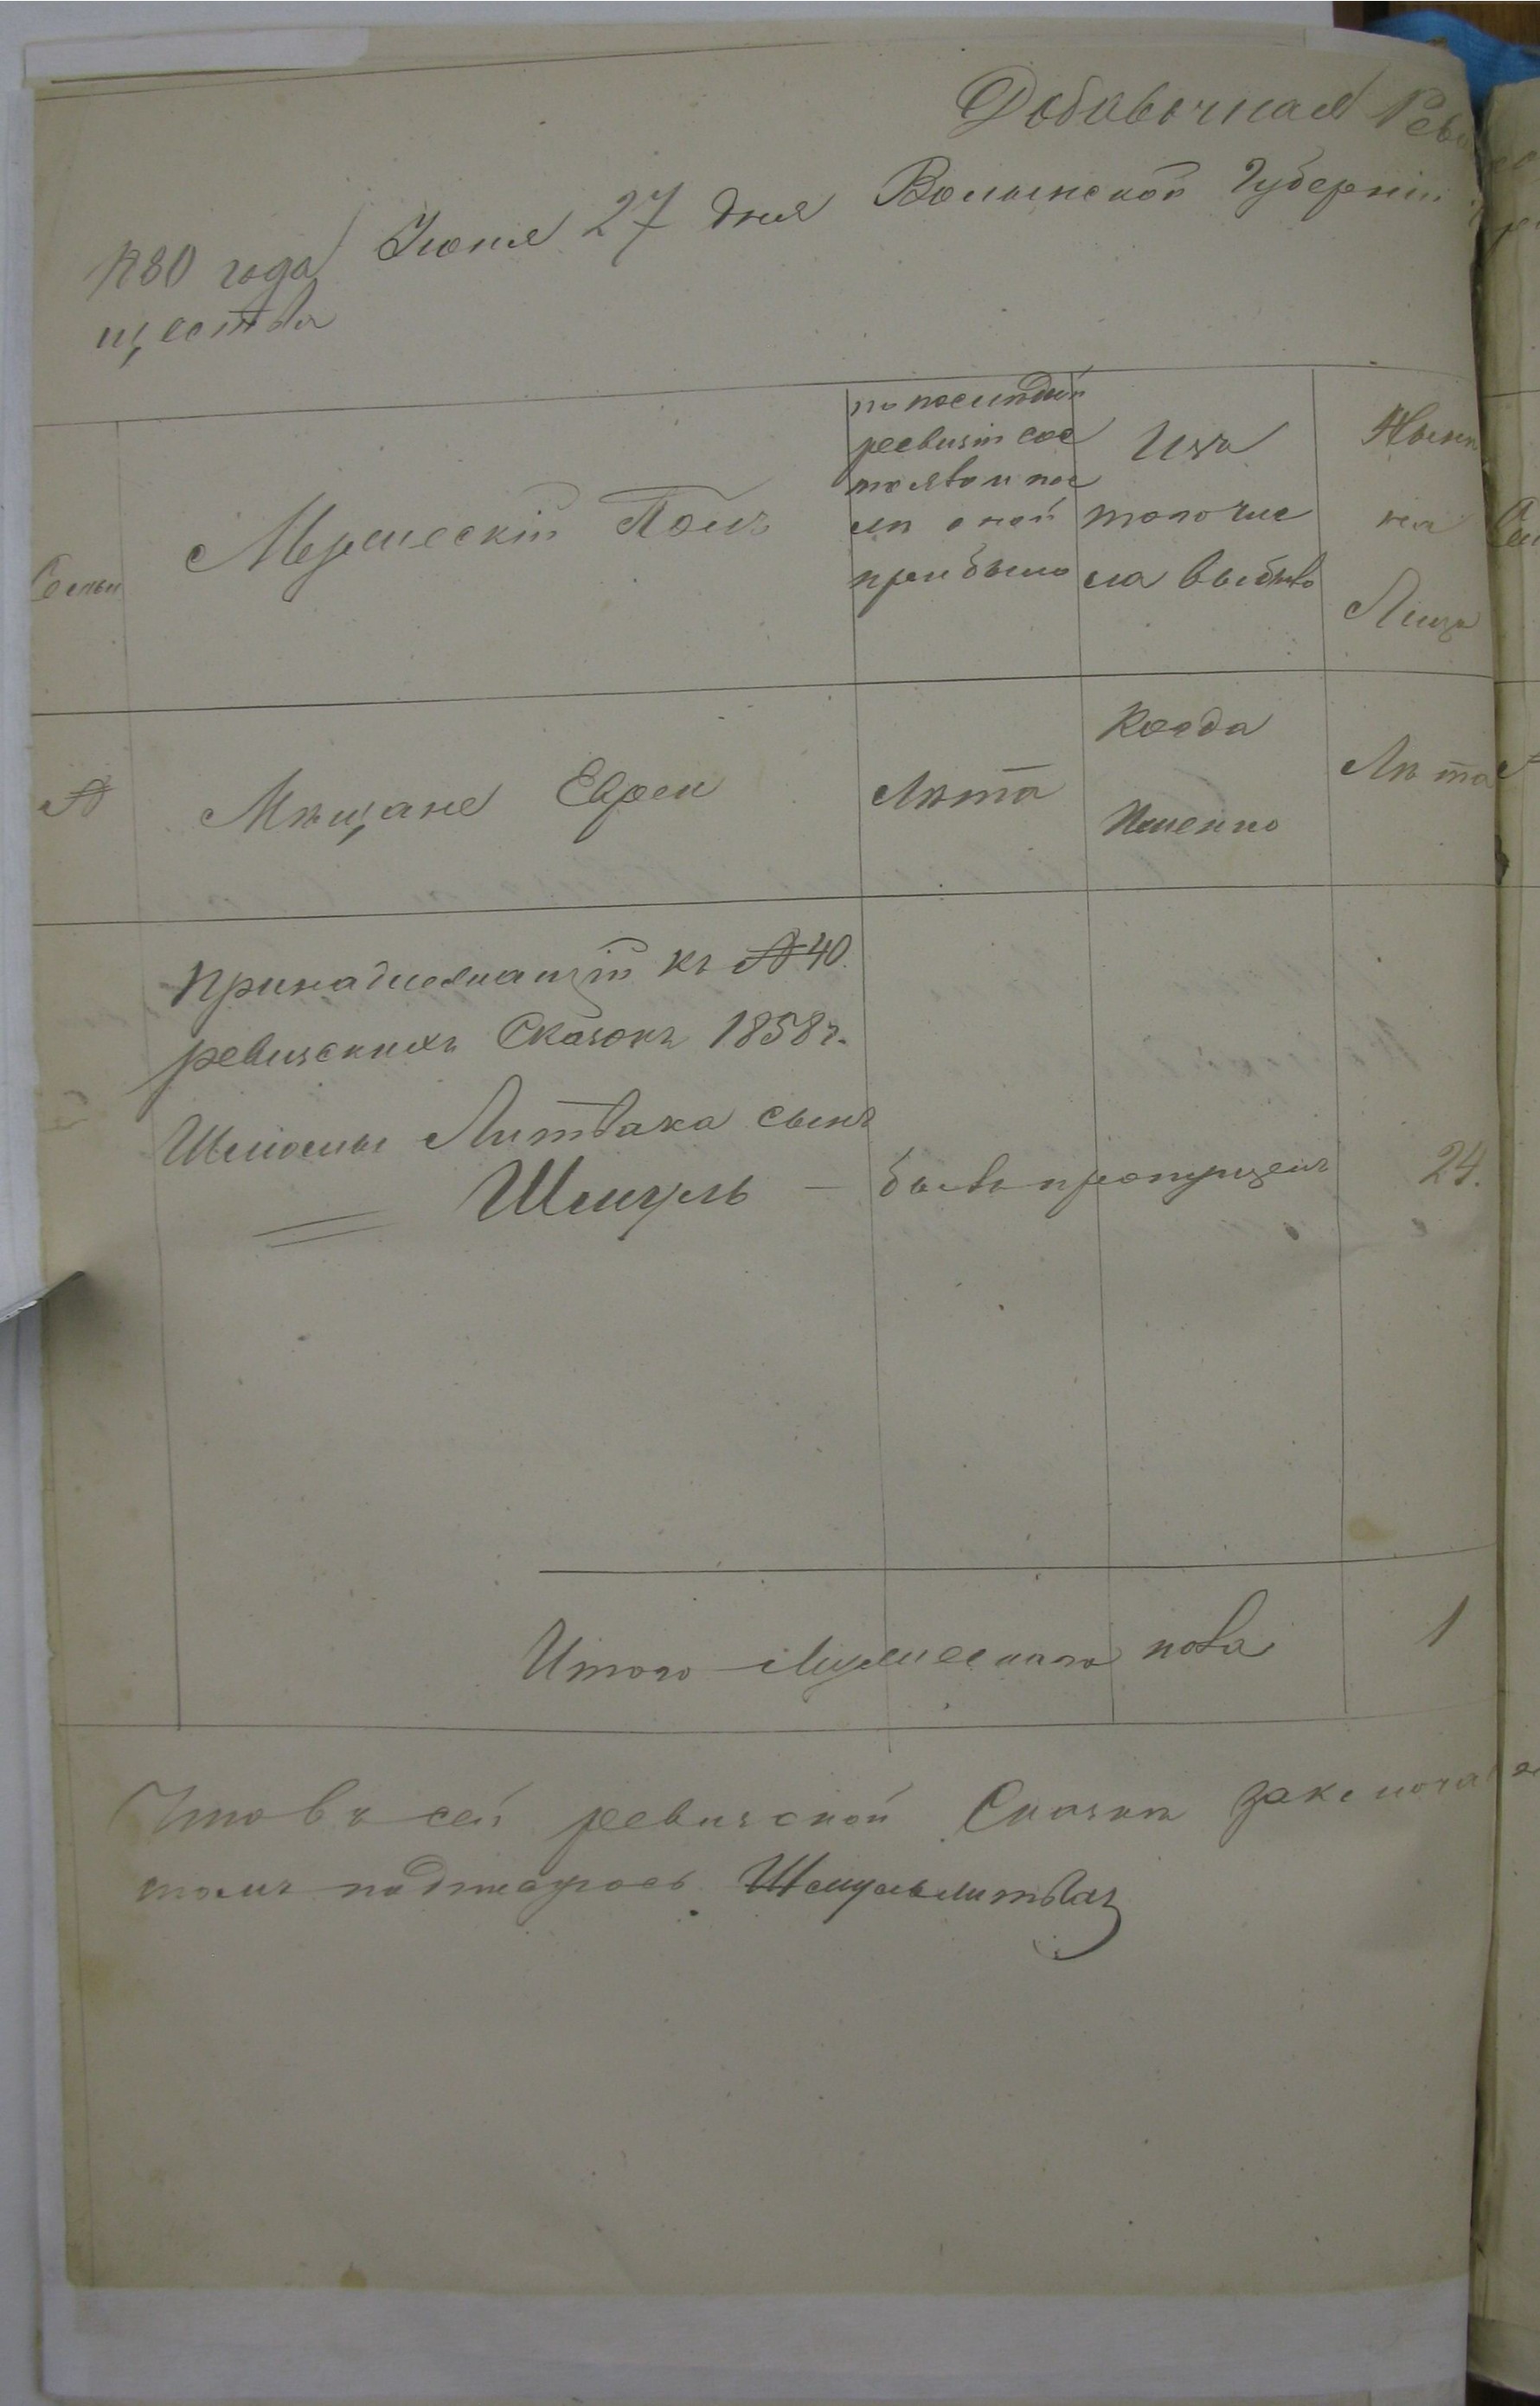 Добавочная Рев
1880 года Июня 27 дня Волынской Губерніи
щества
Семьи
Мужескій Полъ
по послѣдней
ревизіи сос
тояло и пос
лѣ оной
прибыло
Изъ
того чис
ла выбыло
Нынѣ
на
Лицо
№
Мѣщане Евреи
Лѣта
Когда
Именно
Лѣта
Принадлежащій къ № 40
ревизскихъ Сказокъ 1858 г.
Шліомы Литвака сынъ
Шмуль — былъ пропущенъ 24.
Итого Мужескаго пола 1
Что въ сей ревизской Сказкѣ заключа
томъ подписуюсь Шмуль Литвакъ